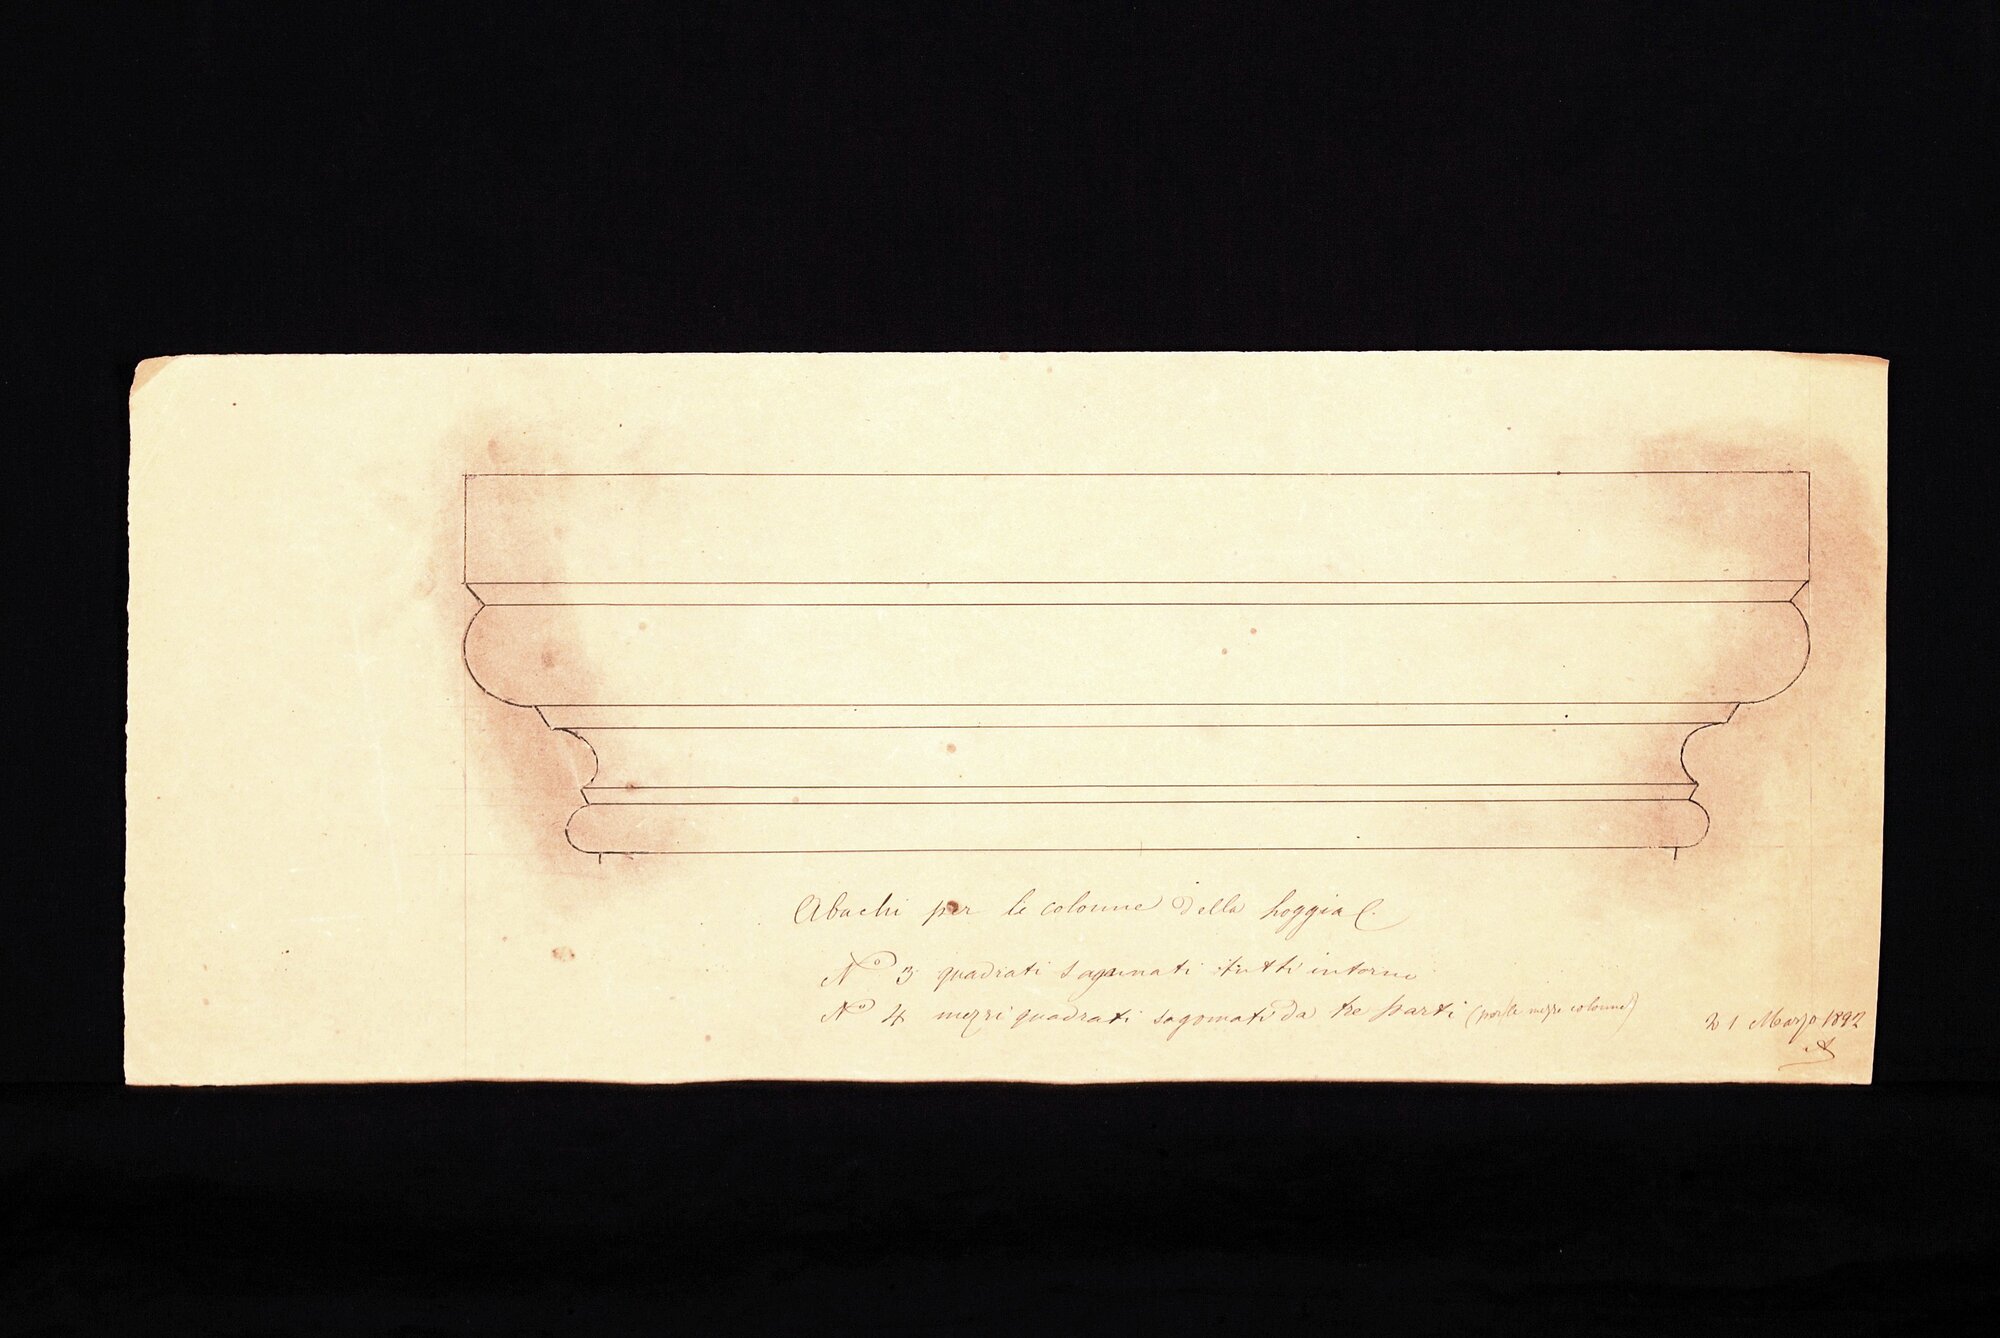 Abachi per le colonne della Loggia C.
N.º 3 quadrati sagomati tutti intorno
N.º 4 mezzi quadrati sagomati da tre parti (per le mezze colonne)
21 Marzo 1892
A